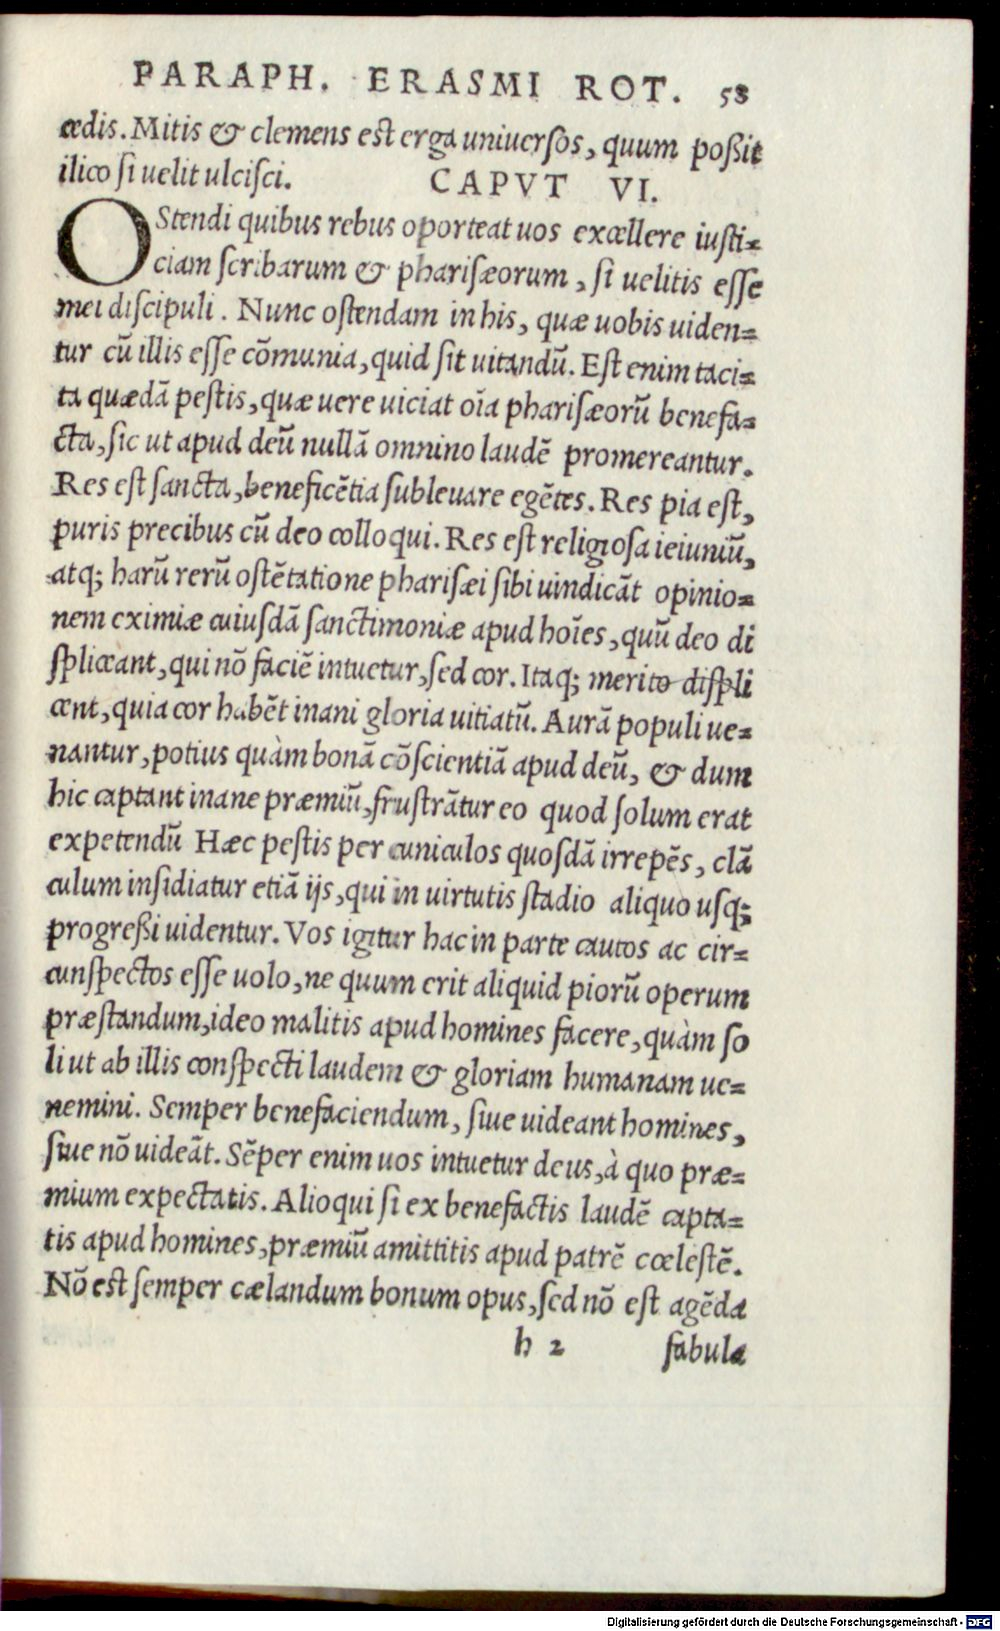 PARAPH. ERASMI ROT. 58
cædis. Mitis & clemens est erga uniuersos, quum poßit
ilico si uelit ulcisci. CAPVT VI.
OStendi quibus rebus oporteat uos excellere iusti-
ciam scribarum & pharisæorum, si uelitis esse
mei discipuli. Nunc ostendam in his, quæ uobis uiden-
tur cũ illis esse cõmunia, quid sit uitandũ. Est enim taci-
ta quædã pestis, quæ uere uiciat oĩa pharisæorũ benefa-
cta, sic ut apud deũ nullã omnino laudẽ promereantur.
Res est sancta, beneficẽtia subleuare egẽtes. Res pia est,
puris precibus cũ deo colloqui. Res est religiosa ieiuniũ,
atq; harũ rerũ ostẽtatione pharisæi sibi uindicãt opinio-
nem eximiæ cuiusdã sanctimoniæ apud hoĩes, quũ deo di
spliceant, qui nõ faciẽ intuetur, sed cor. Itaq; merito displi
cent, quia cor habẽt inani gloria uitiatũ. Aurã populi ue-
nantur, potius quàm bonã cõscientiã apud deũ, & dum
hic captant inane præmiũ, frustrãtur eo quod solum erat
expetendũ Hæc pestis per cuniculos quosdã irrepẽs, clã
culum insidiatur etiã ijs, qui in uirtutis stadio aliquo usq;
progreßi uidentur. Vos igitur hac in parte cautos ac cir-
cunspectos esse uolo, ne quum erit aliquid piorũ operum
præstandum, ideo malitis apud homines facere, quàm so
li ut ab illis conspecti laudem & gloriam humanam ue-
nemini. Semper benefaciendum, siue uideant homines,
siue nõ uideãt. Sẽper enim uos intuetur deus, à quo præ-
mium expectatis. Alioqui si ex benefactis laudẽ capta-
tis apud homines, præmiũ amittitis apud patrẽ cœlestẽ.
Nõ est semper cælandum bonum opus, sed nõ est agẽda
h 2 fabula
Digitalisierung gefördert durch die Deutsche Forschungsgemeinschaft - DFG